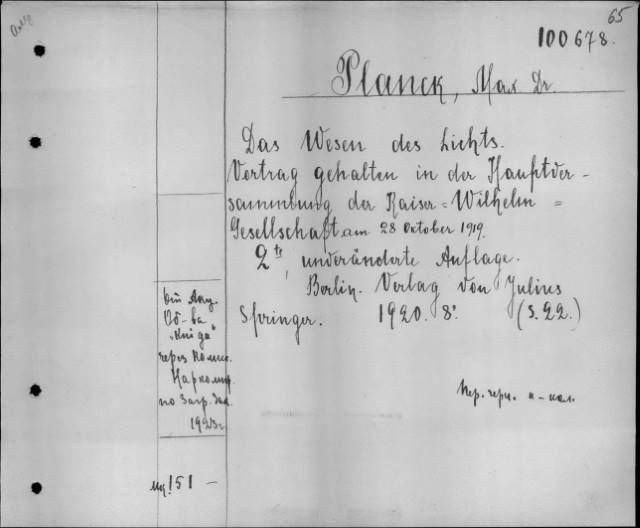 65
100678.
Planck, Max Dr.
Das Wesen des Lichts.
Vortrag gehalten in der Hauptver-
sammlung der Kaiser=Wilhelm=
Gesellschaft am 28 October 1919.
2te, underänderte Auflage.
Berlin. Verlag von Julius
Springer. 1920. 8°. (S. 22.)
Об-ва
"Книга"
через Комис.
Наркомпр.
по Загр. Зак.
1923г.
Пер. черн. к-кол.
151 –